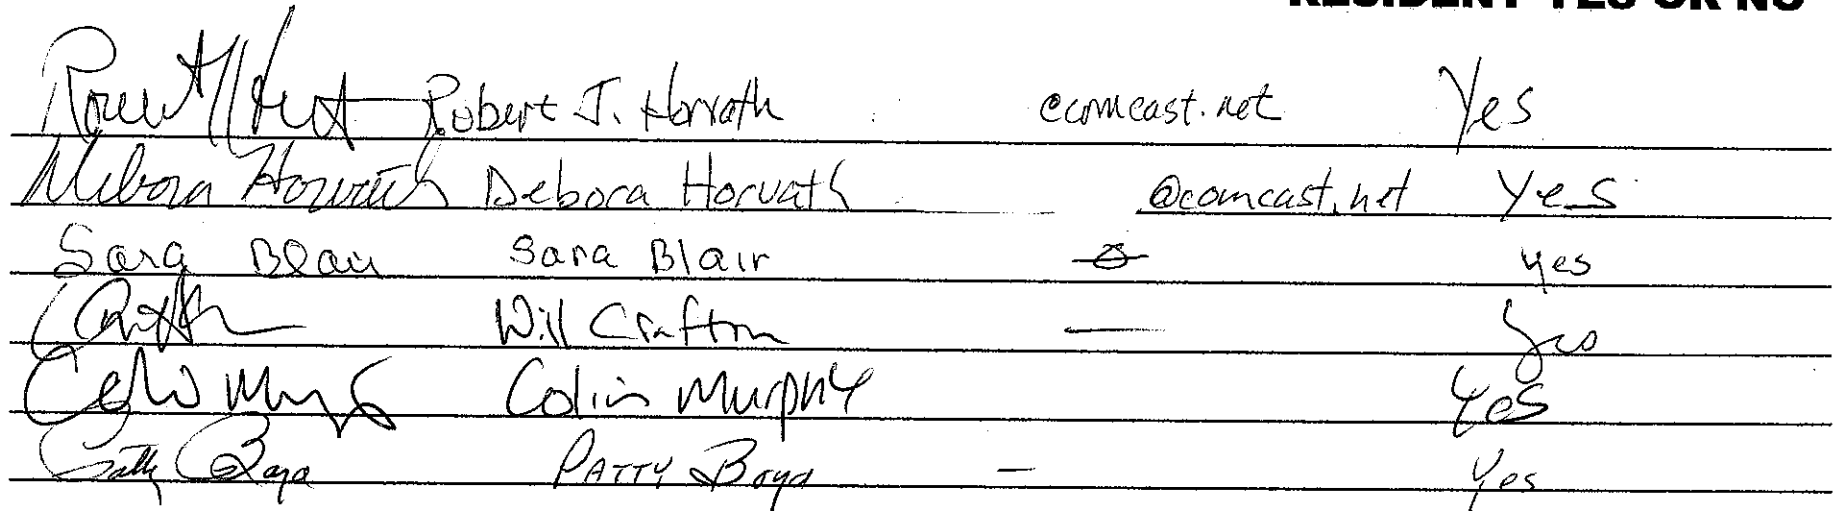 RESIDENT YES OR NO
Robert J. Horvath @comcast.net Yes
Debora Horvath Debora Horvath @comcast.net Yes
Sara Blair Sara Blair yes
Will Crafton — Yes
Colin Murphy Colin Murphy Yes
Patty Boyd PATTY Boyd — Yes